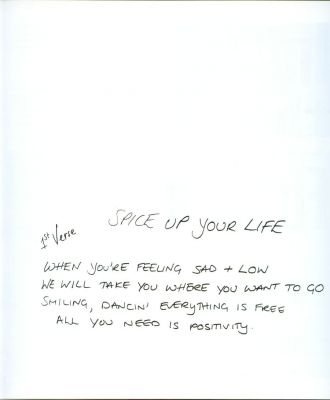 SPICE UP YOUR LIFE
1st Verse
WHEN YOU'RE FEELING SAD + LOW
WE WILL TAKE YOU WHERE YOU WANT TO GO
SMILING, DANCIN' EVERYTHING IS FREE
ALL YOU NEED IS POSITIVITY.